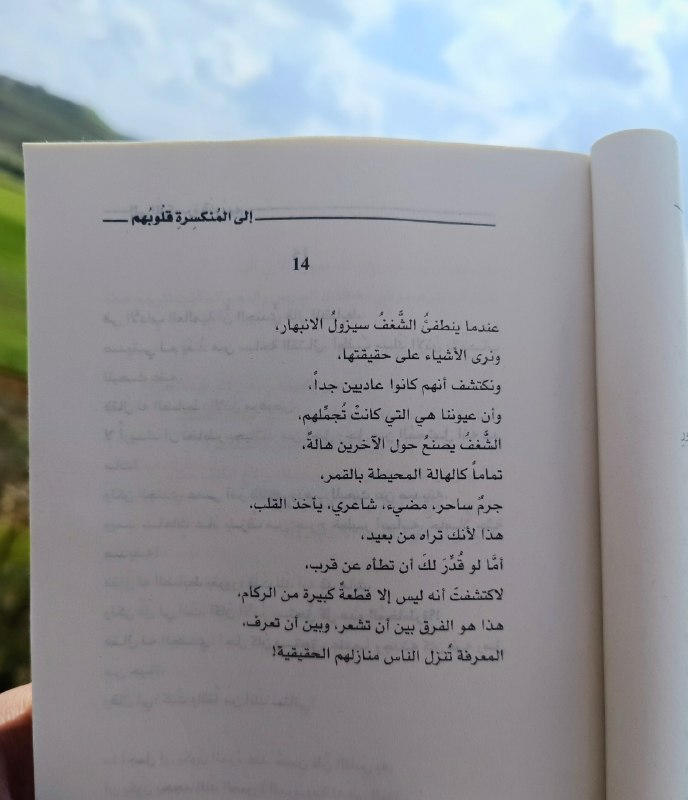 إلى المُنكسِرةِ قلُوبُهم
14
عندما ينطفئُ الشَّغفُ سيزولُ الانبهار،
ونرى الأشياء على حقيقتها،
ونكتشف أنهم كانوا عاديين جداً،
وأن عيوننا هي التي كانتْ تُجمِّلهم،
الشَّغفُ يصنعُ حول الآخرين هالةً،
تماماً كالهالة المحيطة بالقمر،
جرمٌ ساحر، مضيء، شاعري، يأخذ القلب،
هذا لأنك تراه من بعيد،
أمَّا لو قُدِّرَ لكَ أن تطأه عن قرب،
لاكتشفتَ أنه ليس إلا قطعةً كبيرة من الركام،
هذا هو الفرق بين أن تشعر، وبين أن تعرف،
المعرفة تُنزل الناس منازلهم الحقيقية!